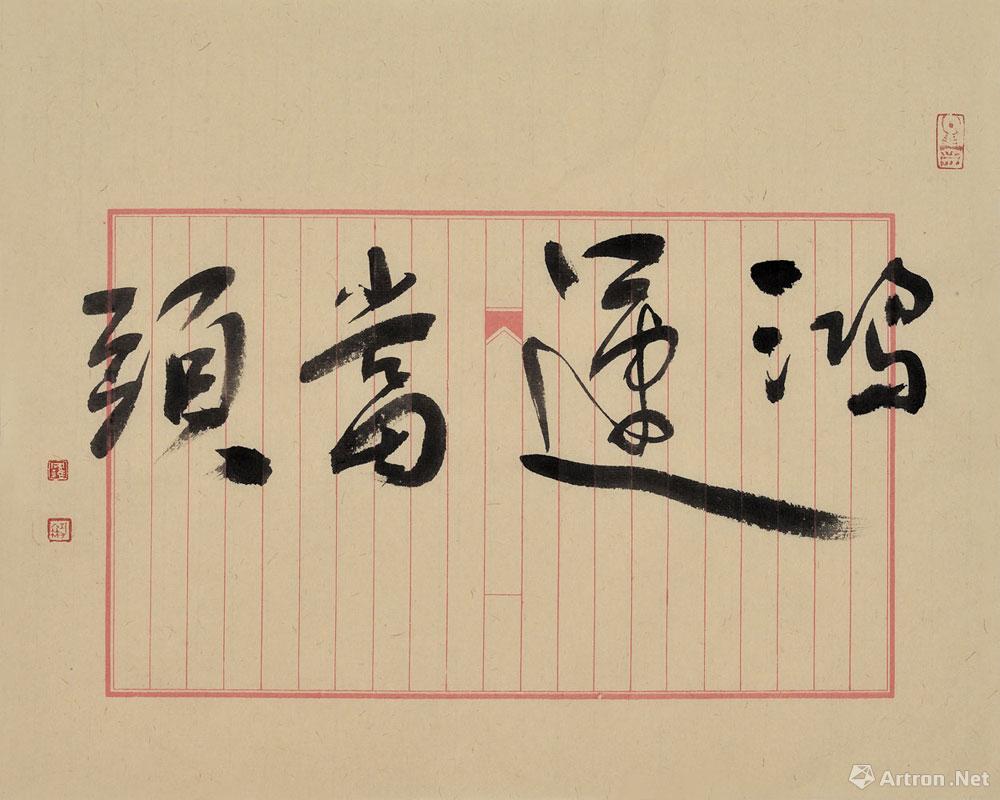 鴻運當頭
Artron.Net